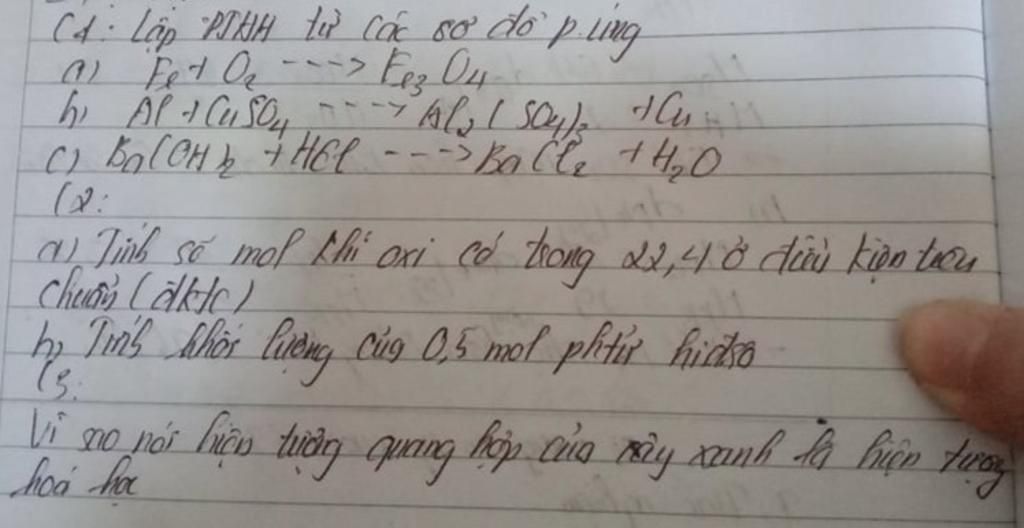 C1: Lập PTHH từ các sơ đồ p.ứng
a) Fe + O2 ---> Fe3O4
b) Al + CuSO4 ---> Al2(SO4)3 + Cu
c) Ba(OH)2 + HCl ---> BaCl2 + H2O
C2:
a) Tính số mol khí oxi có trong 22,4 ở điều kiện tiêu
chuẩn (đktc)
b, Tính khối lượng của 0,5 mol phtử hiđro
C3:
Vì sao nói hiện tượng quang hợp của cây xanh là hiện tượng
hoá học